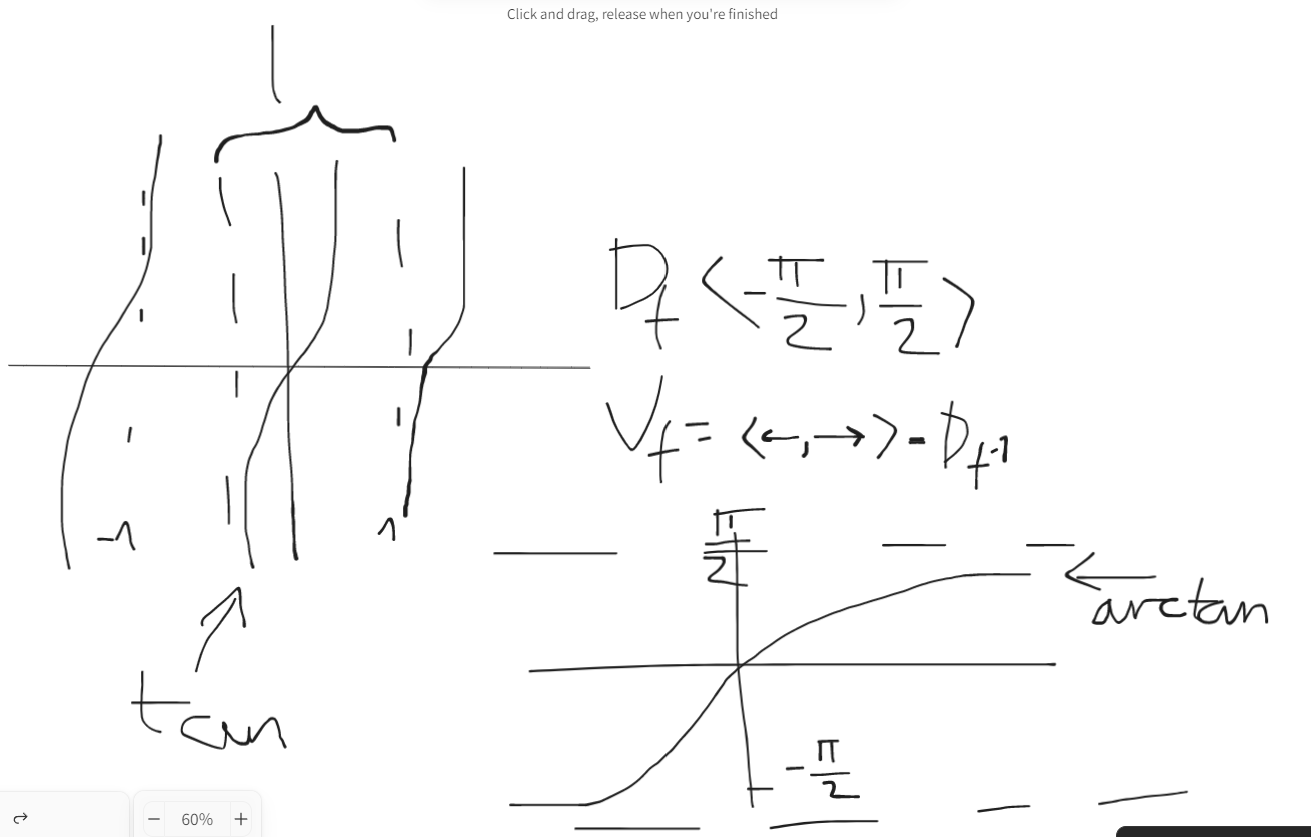 Click and drag, release when you're finished
D_f <-π/2, π/2>
V_f = <←, →> - D_f-1
-1
1
tan
π/2
arctan
-π/2
60%